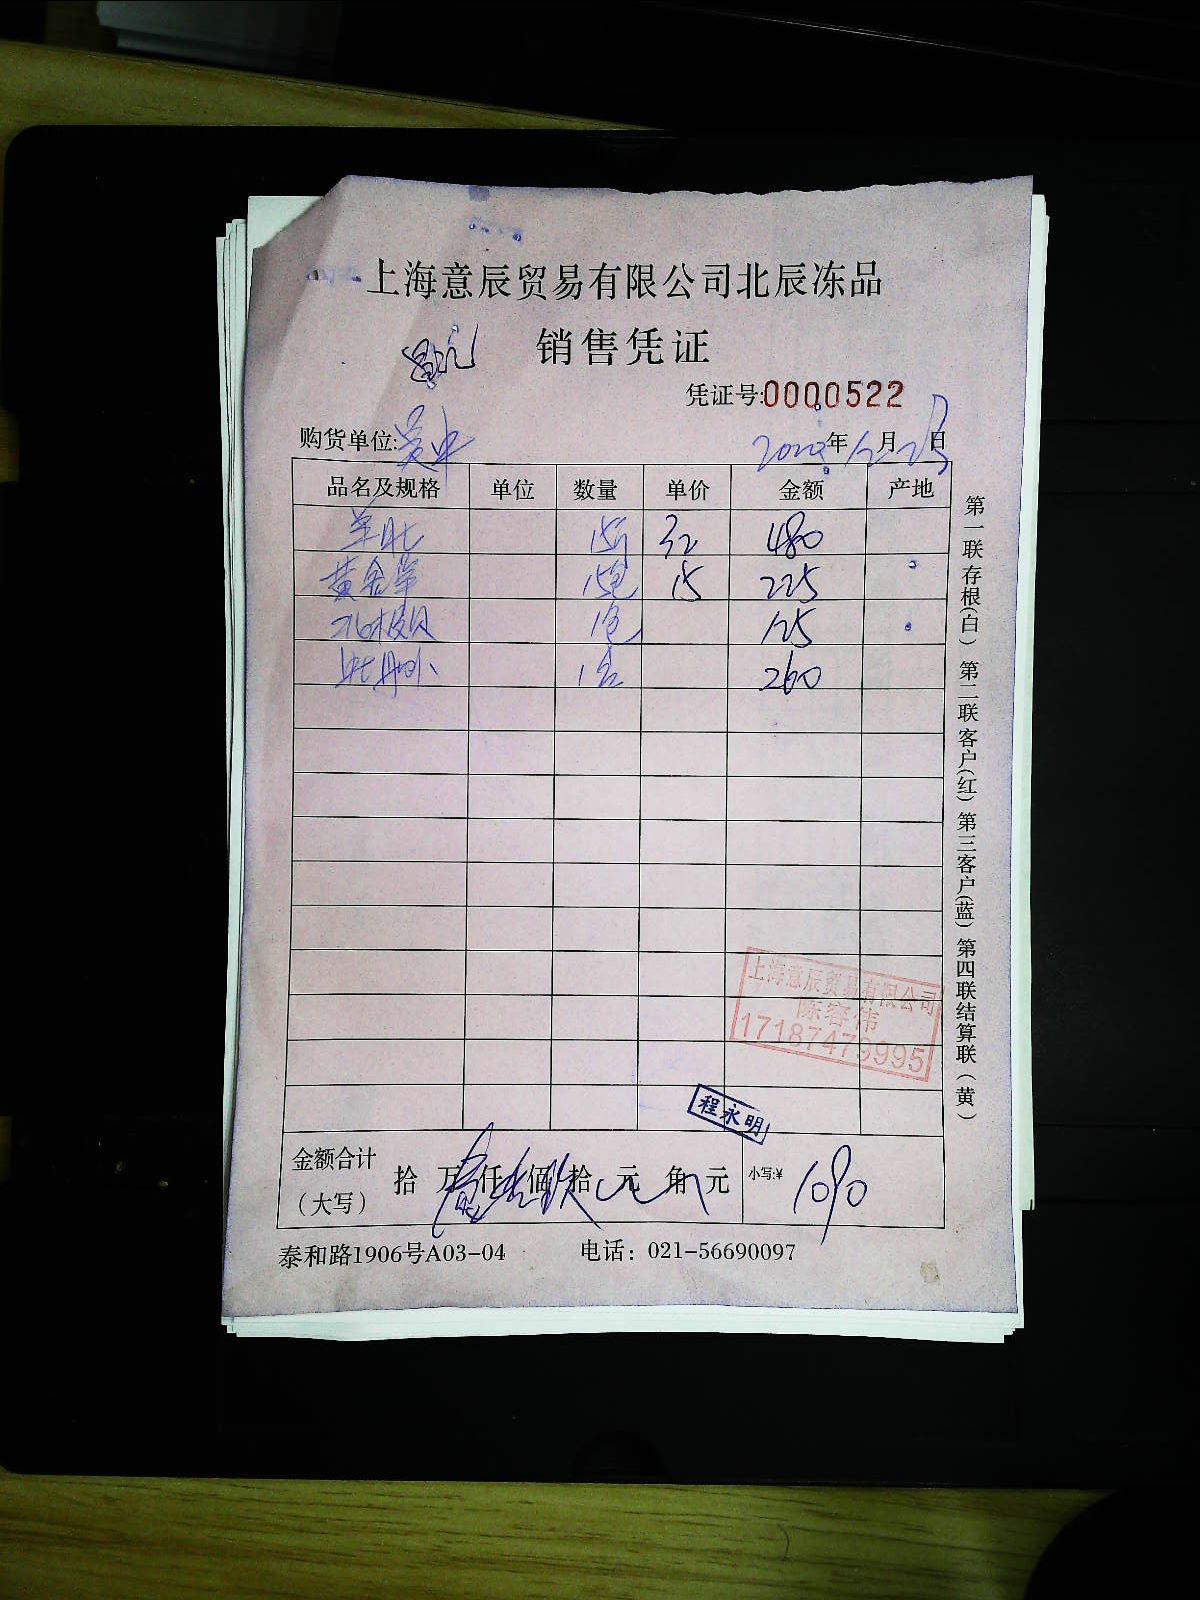 上海意辰贸易有限公司北辰冻品
销售凭证
凭证号:0000522
购货单位: 年12月 日
品名及规格 单位 数量 单价 金额 产地
羊肚 15斤 32 480
黄金笋 15包 15 225
北极贝 1包 125
牡丹虾 1盒 260
上海意辰贸易有限公司
陈容伟
17187479995
程永明
金额合计（大写） 拾 万 仟 佰 拾 元 角 元 小写:¥ 1090
泰和路1906号A03-04 电话：021-56690097
第一联存根(白) 第二联客户(红) 第三客户(蓝) 第四联结算联(黄)